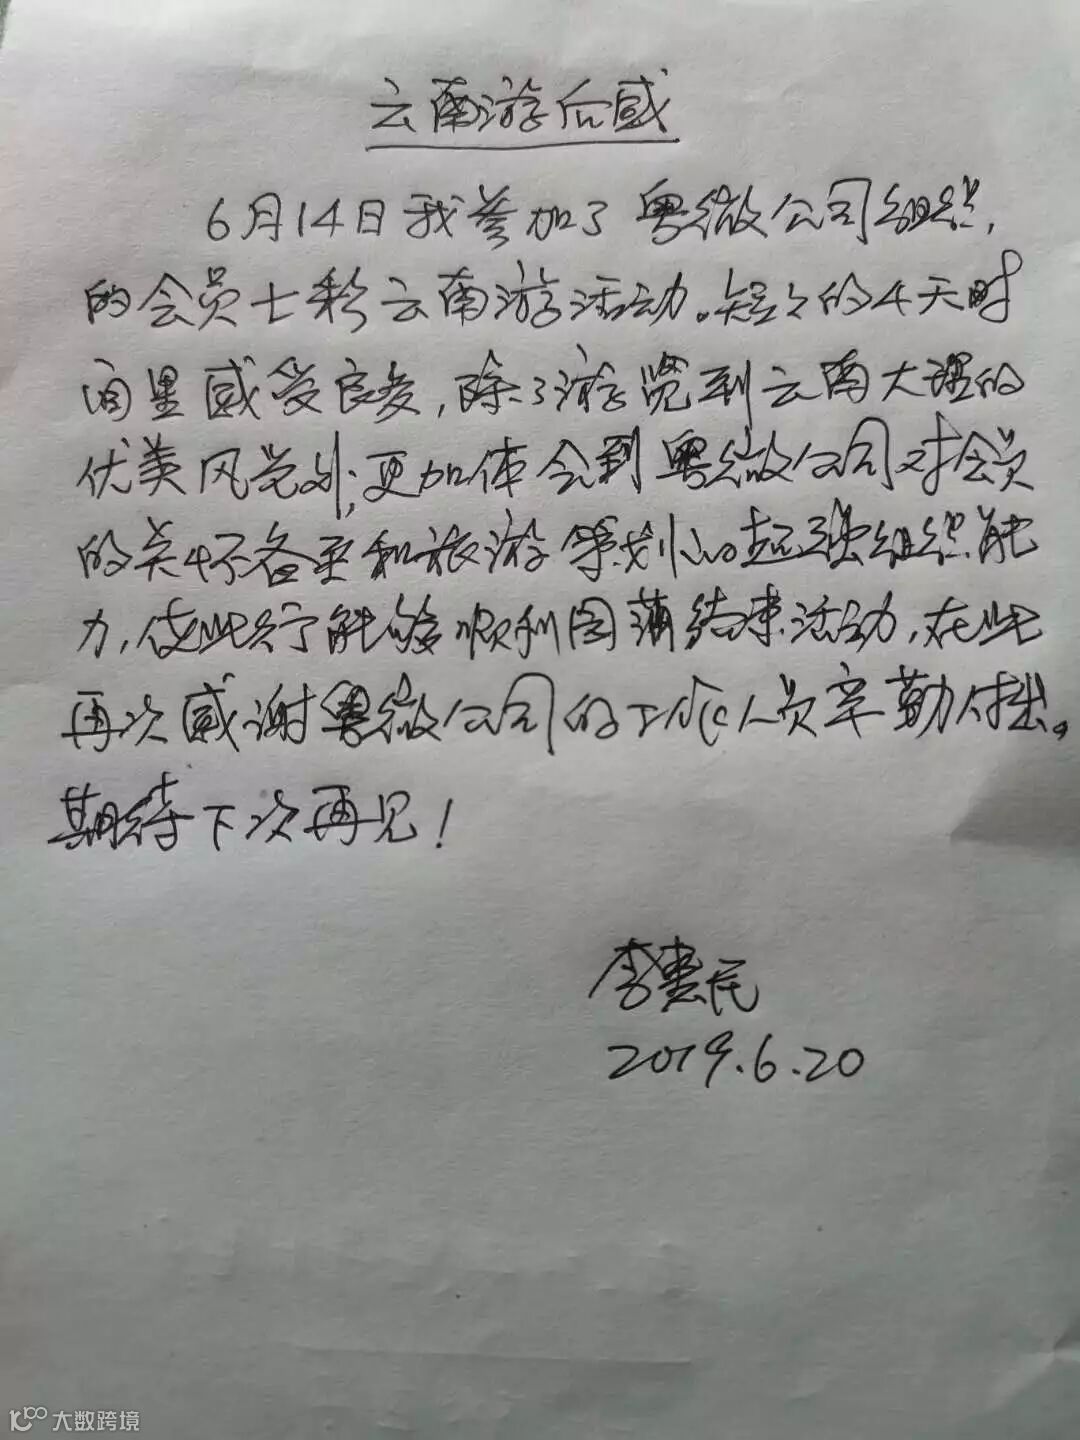 云南游后感
6月14日我参加了粤微公司组织,
的会员七彩云南游活动。短々的4天时
间里感受良多,除了游览到云南大理的
优美风光外;更加体会到粤微公司对会员
的关怀备至和旅游策划的超强组织能
力,使此行能够顺利圆满结束活动,在此
再次感谢粤微公司的工作人员辛勤付出。
期待下次再见!
李惠民
2019.6.20
大数跨境